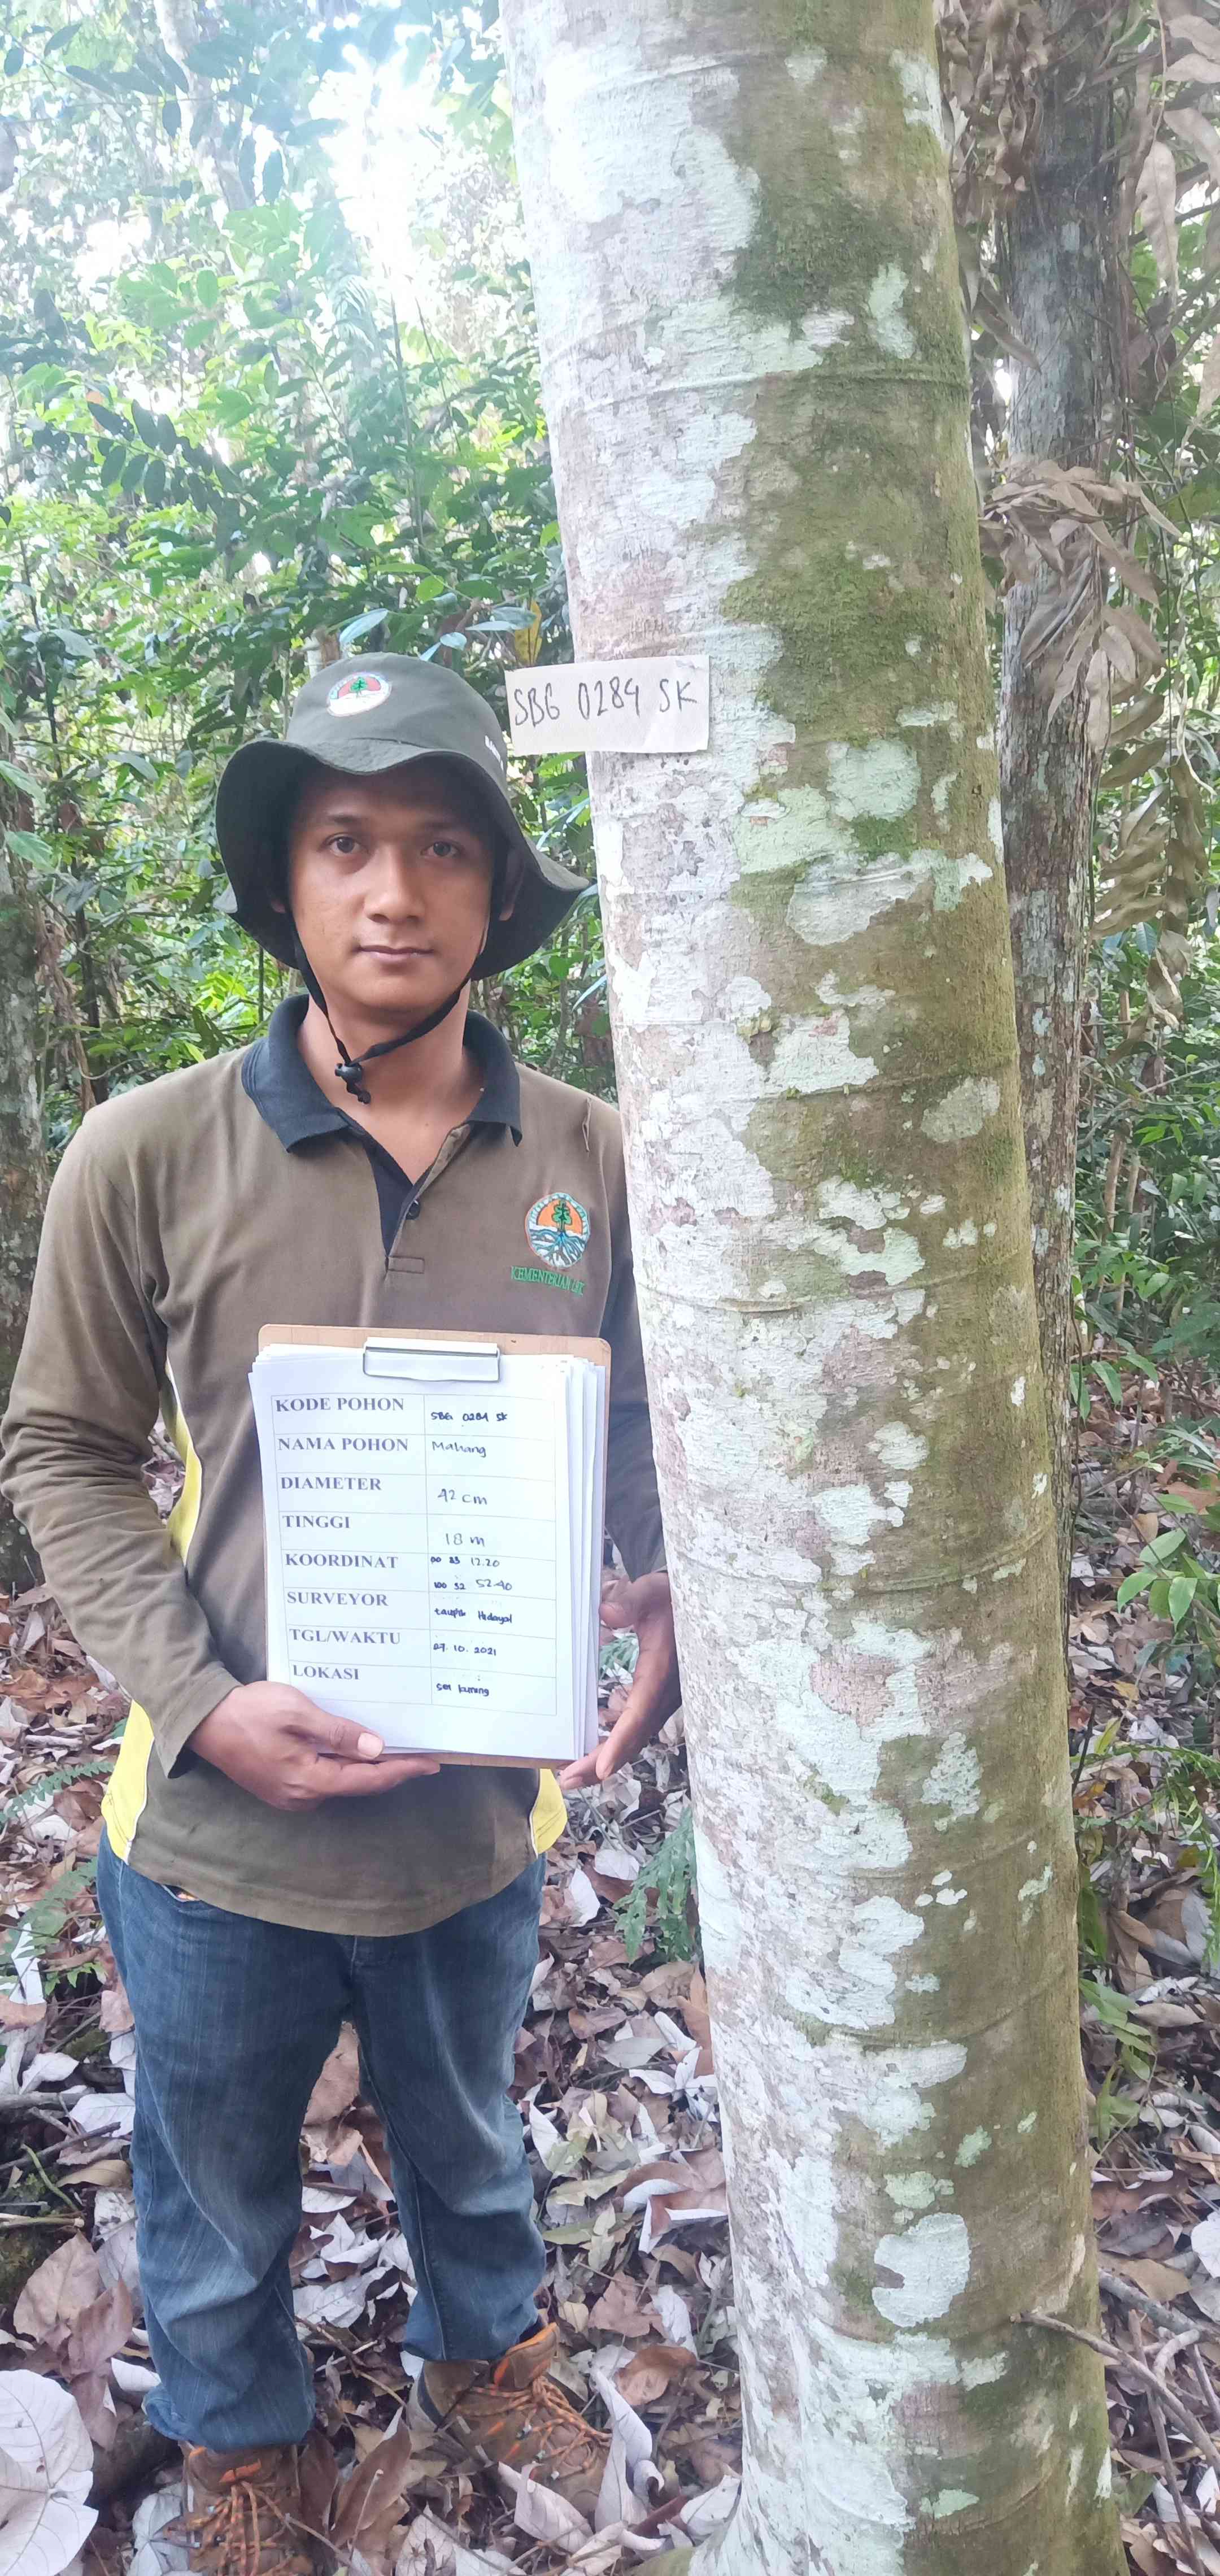 SBG 0284 SK
KEMENTERIAN LHK
KODE POHON SBG 0284 SK
NAMA POHON Mahang
DIAMETER 42 cm
TINGGI 18 m
KOORDINAT 00 23 12.20
100 32 52.40
SURVEYOR Hidayat
TGL/WAKTU 27.10.2021
LOKASI sei kuning